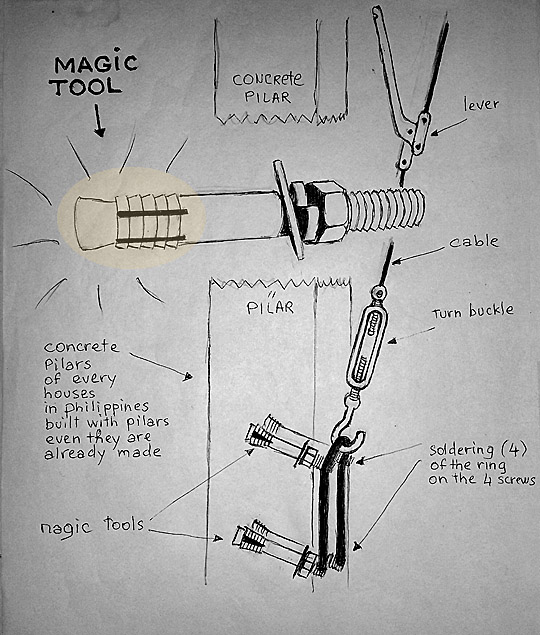 MAGIC
TOOL
CONCRETE
PILAR
lever
cable
PILAR
Turn buckle
concrete
Pilars
of every
houses
in philippines
built with pilars
even they are
already made
soldering (4)
of the ring
on the 4 screws
magic tools